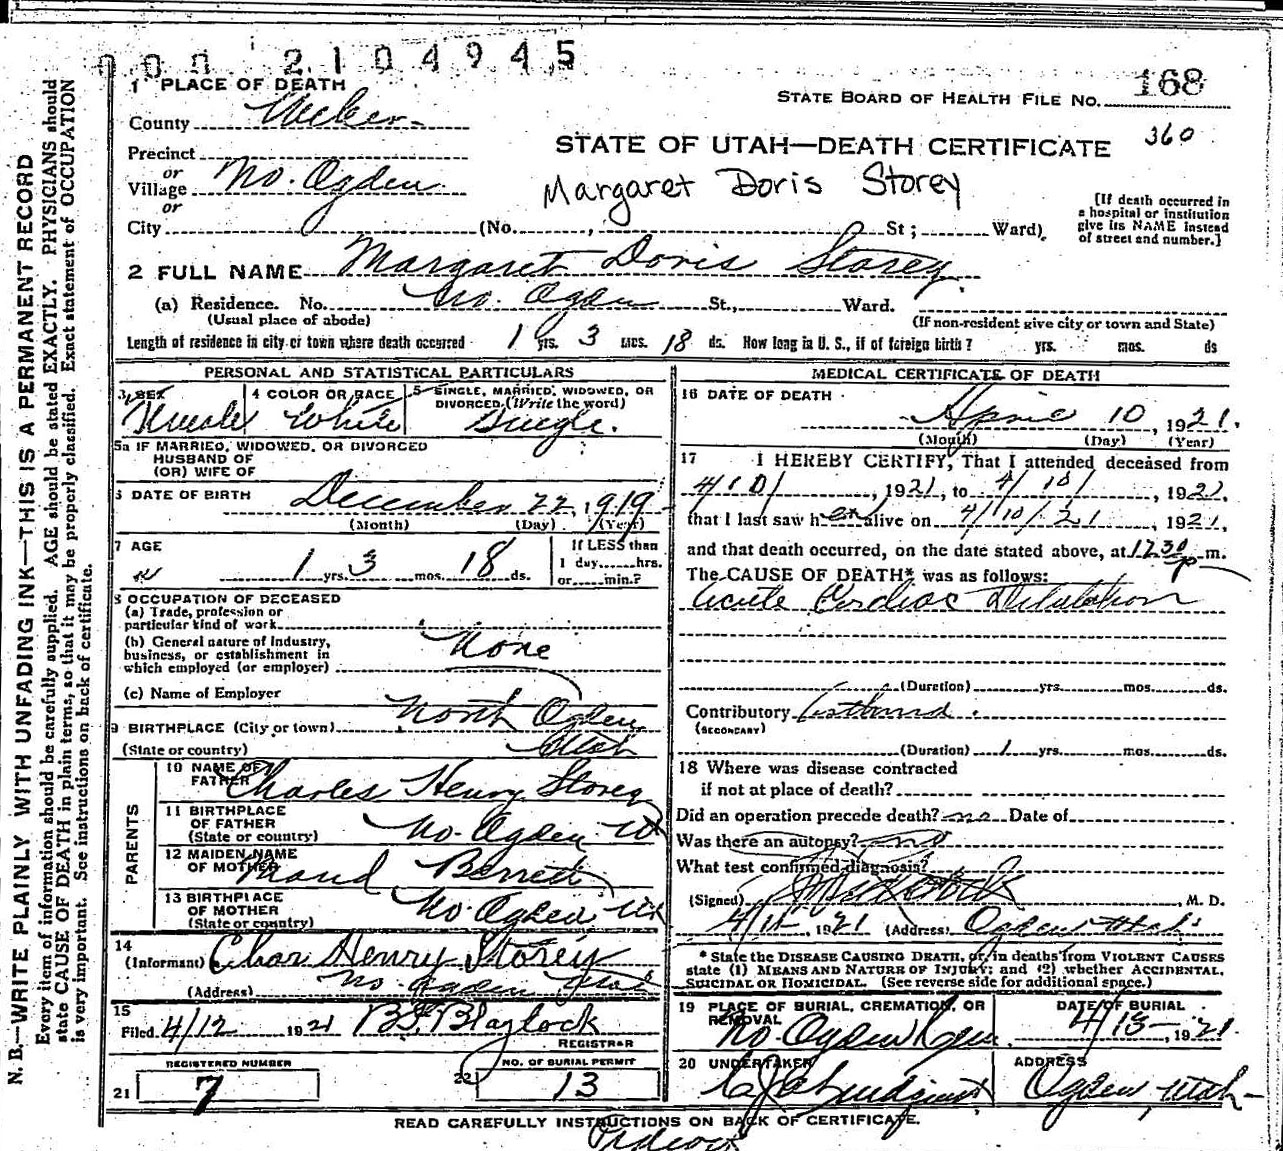 000 2104945
1 PLACE OF DEATH
168
STATE BOARD OF HEALTH FILE NO.
County Weber
STATE OF UTAH—DEATH CERTIFICATE 360
Precinct
or
Village No. Ogden
Margaret Doris Storey
or
City (No. , St; Ward)
[If death occurred in
a hospital or institution
give its NAME instead
of street and number.]
2 FULL NAME Margaret Doris Storey
(a) Residence. No. No. Ogden St., Ward.
(Usual place of abode) (If non-resident give city or town and State)
Length of residence in city or town where death occurred 1 yrs. 3 mos. 18 ds. How long in U. S., if of foreign birth? yrs. mos. ds
PERSONAL AND STATISTICAL PARTICULARS
3 SEX 4 COLOR OR RACE 5 SINGLE, MARRIED, WIDOWED, OR
DIVORCED (Write the word)
Female White Single.
5a IF MARRIED, WIDOWED, OR DIVORCED
HUSBAND OF
(OR) WIFE OF
6 DATE OF BIRTH December 22, 1919
(Month) (Day) (Year)
7 AGE 1 yrs. 3 mos. 18 ds.
If LESS than
1 day hrs.
or min.?
8 OCCUPATION OF DECEASED
(a) Trade, profession or
particular kind of work
(b) General nature of Industry,
business, or establishment in
which employed (or employer) None
(c) Name of Employer
9 BIRTHPLACE (City or town) North Ogden
(State or country) Utah
PARENTS
10 NAME OF
FATHER Charles Henry Storey
11 BIRTHPLACE
OF FATHER
(State or country) No. Ogden Ut
12 MAIDEN NAME
OF MOTHER Maud Berrett
13 BIRTHPLACE
OF MOTHER
(State or country) No. Ogden Ut
14
(Informant) Chas Henry Storey
(Address) No. Ogden Utah
15
Filed 4/12 1921 Blaylock
REGISTRAR
REGISTERED NUMBER NO. OF BURIAL PERMIT
21 7 22 13
MEDICAL CERTIFICATE OF DEATH
16 DATE OF DEATH
April 10, 1921.
(Month) (Day) (Year)
17 I HEREBY CERTIFY, That I attended deceased from
4/10/, 1921, to 4/10/, 1921,
that I last saw her alive on 4/10/21, 1921,
and that death occurred, on the date stated above, at 1230 p m.
The CAUSE OF DEATH* was as follows:
Acute Cardiac Dilatation
(Duration) yrs. mos. ds.
Contributory Asthma.
(SECONDARY)
(Duration) 1 yrs. mos. ds.
18 Where was disease contracted
if not at place of death?
Did an operation precede death? no Date of
Was there an autopsy? no
What test confirmed diagnosis?
(Signed) , M. D.
4/11, 1921 (Address) Ogden Utah
* State the DISEASE CAUSING DEATH, or, in deaths from VIOLENT CAUSES
state (1) MEANS AND NATURE OF INJURY; and (2) whether ACCIDENTAL,
SUICIDAL OR HOMICIDAL. (See reverse side for additional space.)
19 PLACE OF BURIAL, CREMATION, OR
REMOVAL DATE OF BURIAL
No. Ogden Cem. 4/13, 1921.
20 UNDERTAKER ADDRESS
Ogden, Utah
READ CAREFULLY INSTRUCTIONS ON BACK OF CERTIFICATE.
N. B.—WRITE PLAINLY WITH UNFADING INK—THIS IS A PERMANENT RECORD
Every item of information should be carefully supplied. AGE should be stated EXACTLY. PHYSICIANS should
state CAUSE OF DEATH in plain terms, so that it may be properly classified. Exact statement of OCCUPATION
is very important. See instructions on back of certificate.